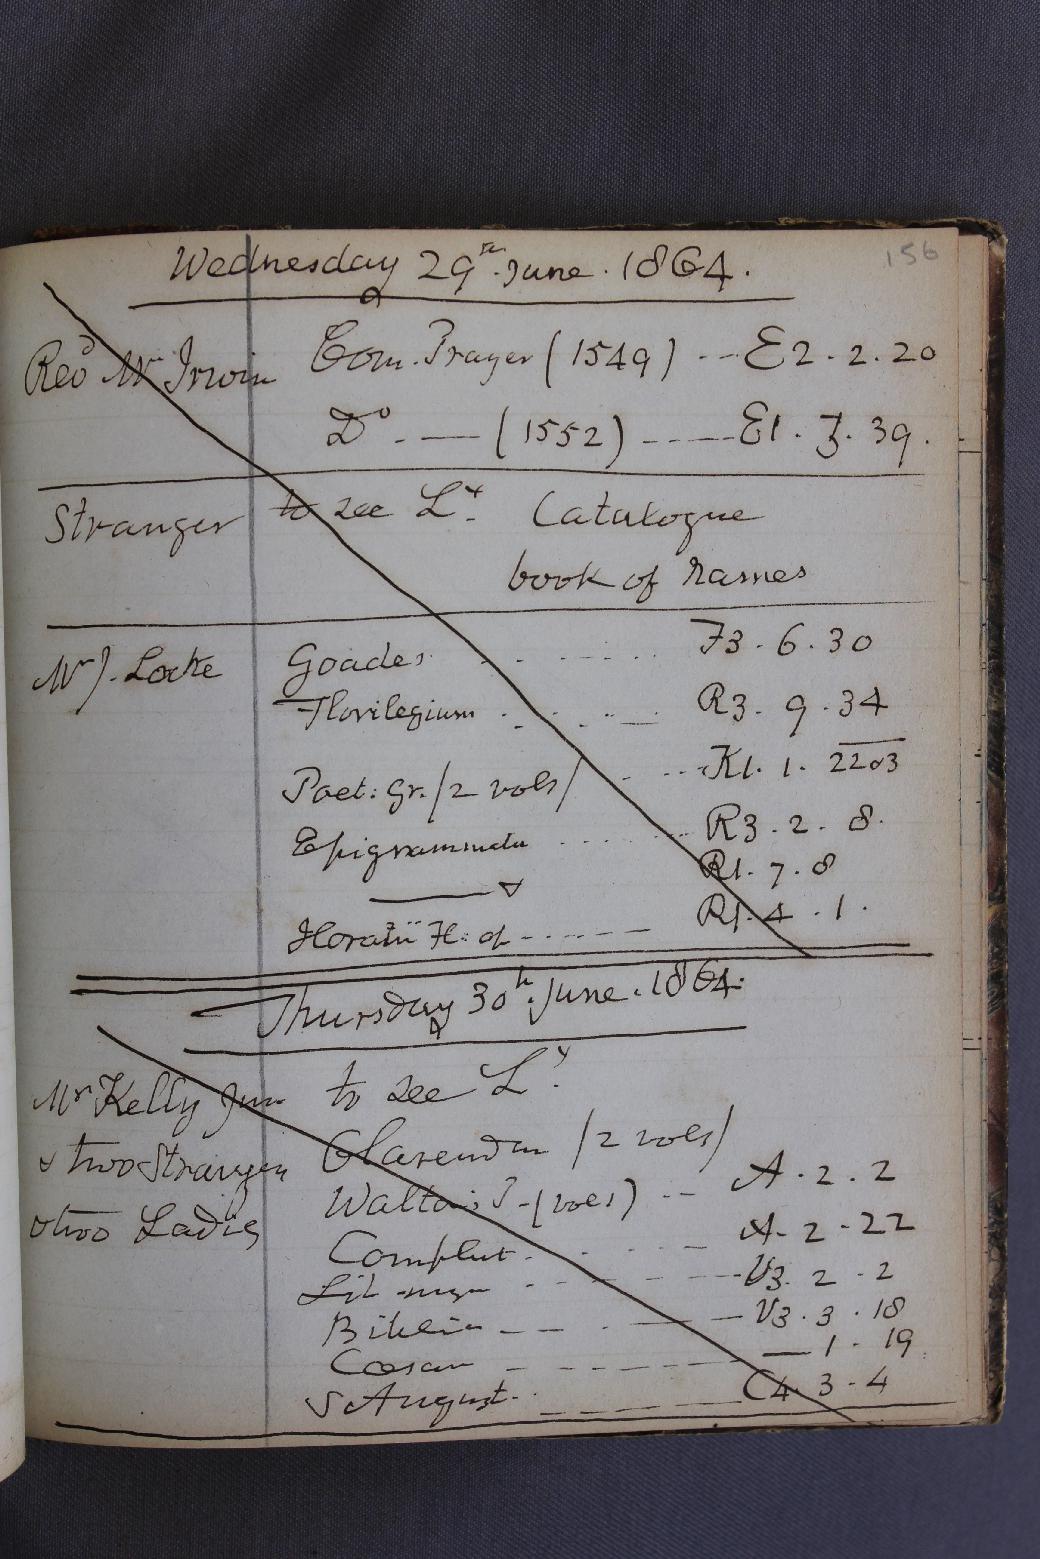 156
Wednesday 29th June. 1864.
Revd Mr Irwin Com. Prayer (1549) -- E2. 2. 20
Do. — (1552) ---- E1. 7. 39.
Stranger to see Ly. Catalogue
book of names
Mr J. Locke Goades ..... F3. 6. 30
Florilegium ..... R3. 9. 34
Poet: Gr. (2 vols) .... K1. 1. 22 03
Epigrammata ..... R3. 2. 8.
R1. 7. 8
Horatii H: of ------ R1. 4. 1.
Thursday 30th June. 1864.
Mr Kelly Junr to see Ly.
Clarendon (2 vols)
& two Strangers
Walton's P- (vols) -- A. 2. 2
& two Ladies
Complut. .... A. 2. 22
Lit. ---- V3. 2. 2
Biblia ---- V3. 3. 18
Cæsar ---- — 1. 19.
S August. ---- C4. 3. 4